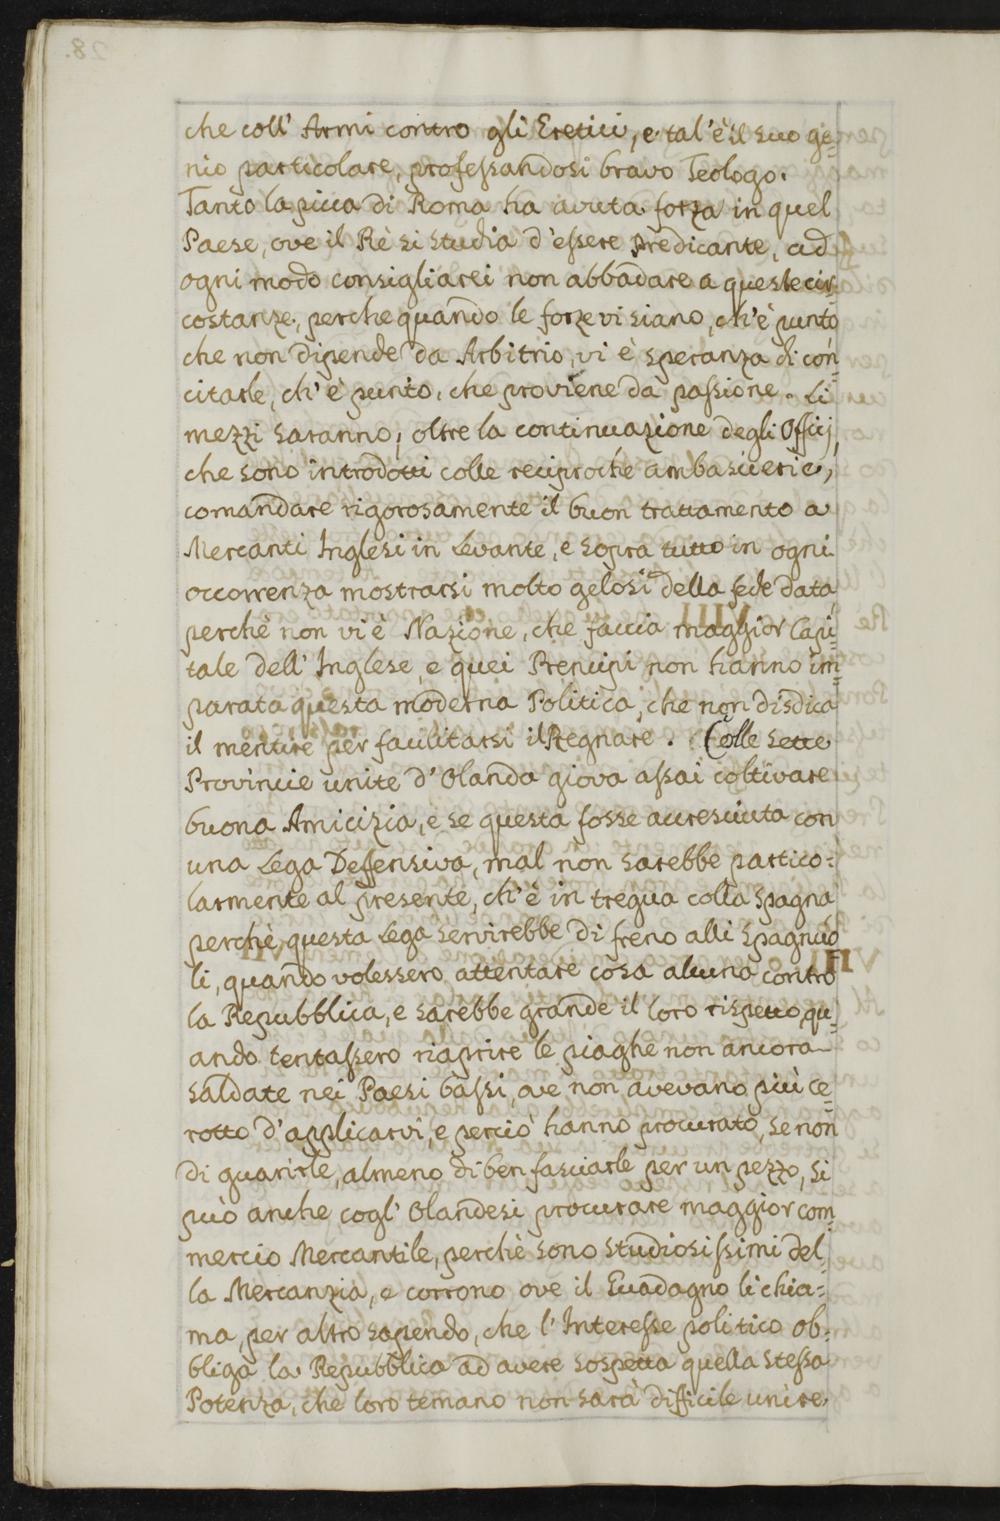 che coll' Armi contro gli Eretici, e tal' è il suo ge=
nio particolare, professandosi bravo Teologo.
Tanto la picca di Roma ha avuta forza in quel
Paese, ove il Rè si studia d'essere predicante, ad
ogni modo consigliarei non abbadare a queste cir
costanze, perche quando le forze vi siano, ch'è punto
che non dipende da Arbitrio, vi è speranza di con=
citarle, ch' è punto, che proviene da passione. Li
mezzi saranno, oltre la continuazione degli Officij,
che sono introdotti colle reciproche ambascierie,
comandare rigorosamente il buon trattamento a
Mercanti Inglesi in Levante, e sopra tutto in ogni
occorrenza mostrarsi molto gelosi della fede data,
perchè non vi è Nazione, che faccia maggior Capi=
tale dell' Inglese, e quei Prencipi non hanno im=
parata questa moderna Politica, che non disdica
il mentire per facilitarsi il Regnare. Colle sette
Provincie unite d' Olanda giova assai coltivare
buona Amicizia, e se questa fosse accresciuta con
una Lega Deffensiva, mal non sarebbe partico=
larmente al presente, ch' è in tregua colla Spagna
perchè questa Lega servirebbe di freno alli Spagnuo
li, quando volessero attentare cosa alcuna contro
la Repubblica, e sarebbe grande il loro rispetto, qu=
ando tentassero riaprire le piaghe non ancora
saldate nei Paesi bassi, ove non avevano più ce=
rotto d' applicarvi, e perciò hanno procurato, se non
di guarirle, almeno di ben fasciarle per un pezzo, si
può anche cogl' Olandesi procurare maggior com=
mercio Mercantile, perchè sono studiosissimi del=
la Mercanzia, e corrono ove il Guadagno li chia=
ma, per altro sapendo, che l' Interesse politico ob=
bliga la Repubblica ad avere sospetta quella stessa
Potenza, che loro temano non sarà difficile unire